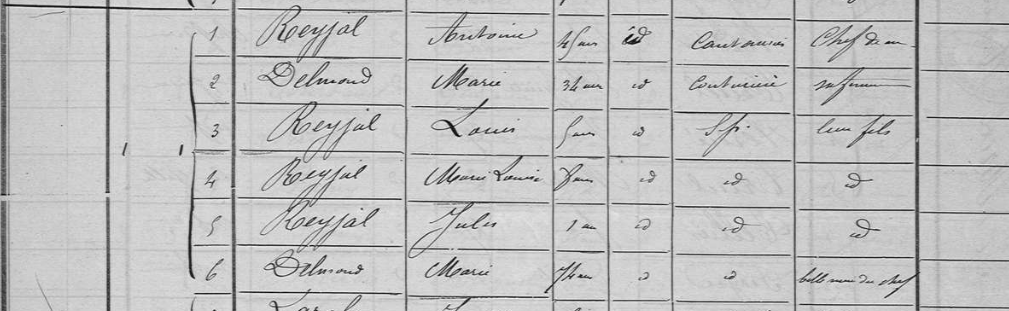 1 Reyjal Antoine 45 ans id Cantonnier Chef de m
2 Delmond Marie 34 ans id Couturière sa femme
3 Reyjal Louis 5 ans id S p leur fils
1 1
4 Reyjal Marie Louise 8 ans id id id
5 Reyjal Jules 1 an id id id
6 Delmond Marie 74 ans id id belle mère du chef